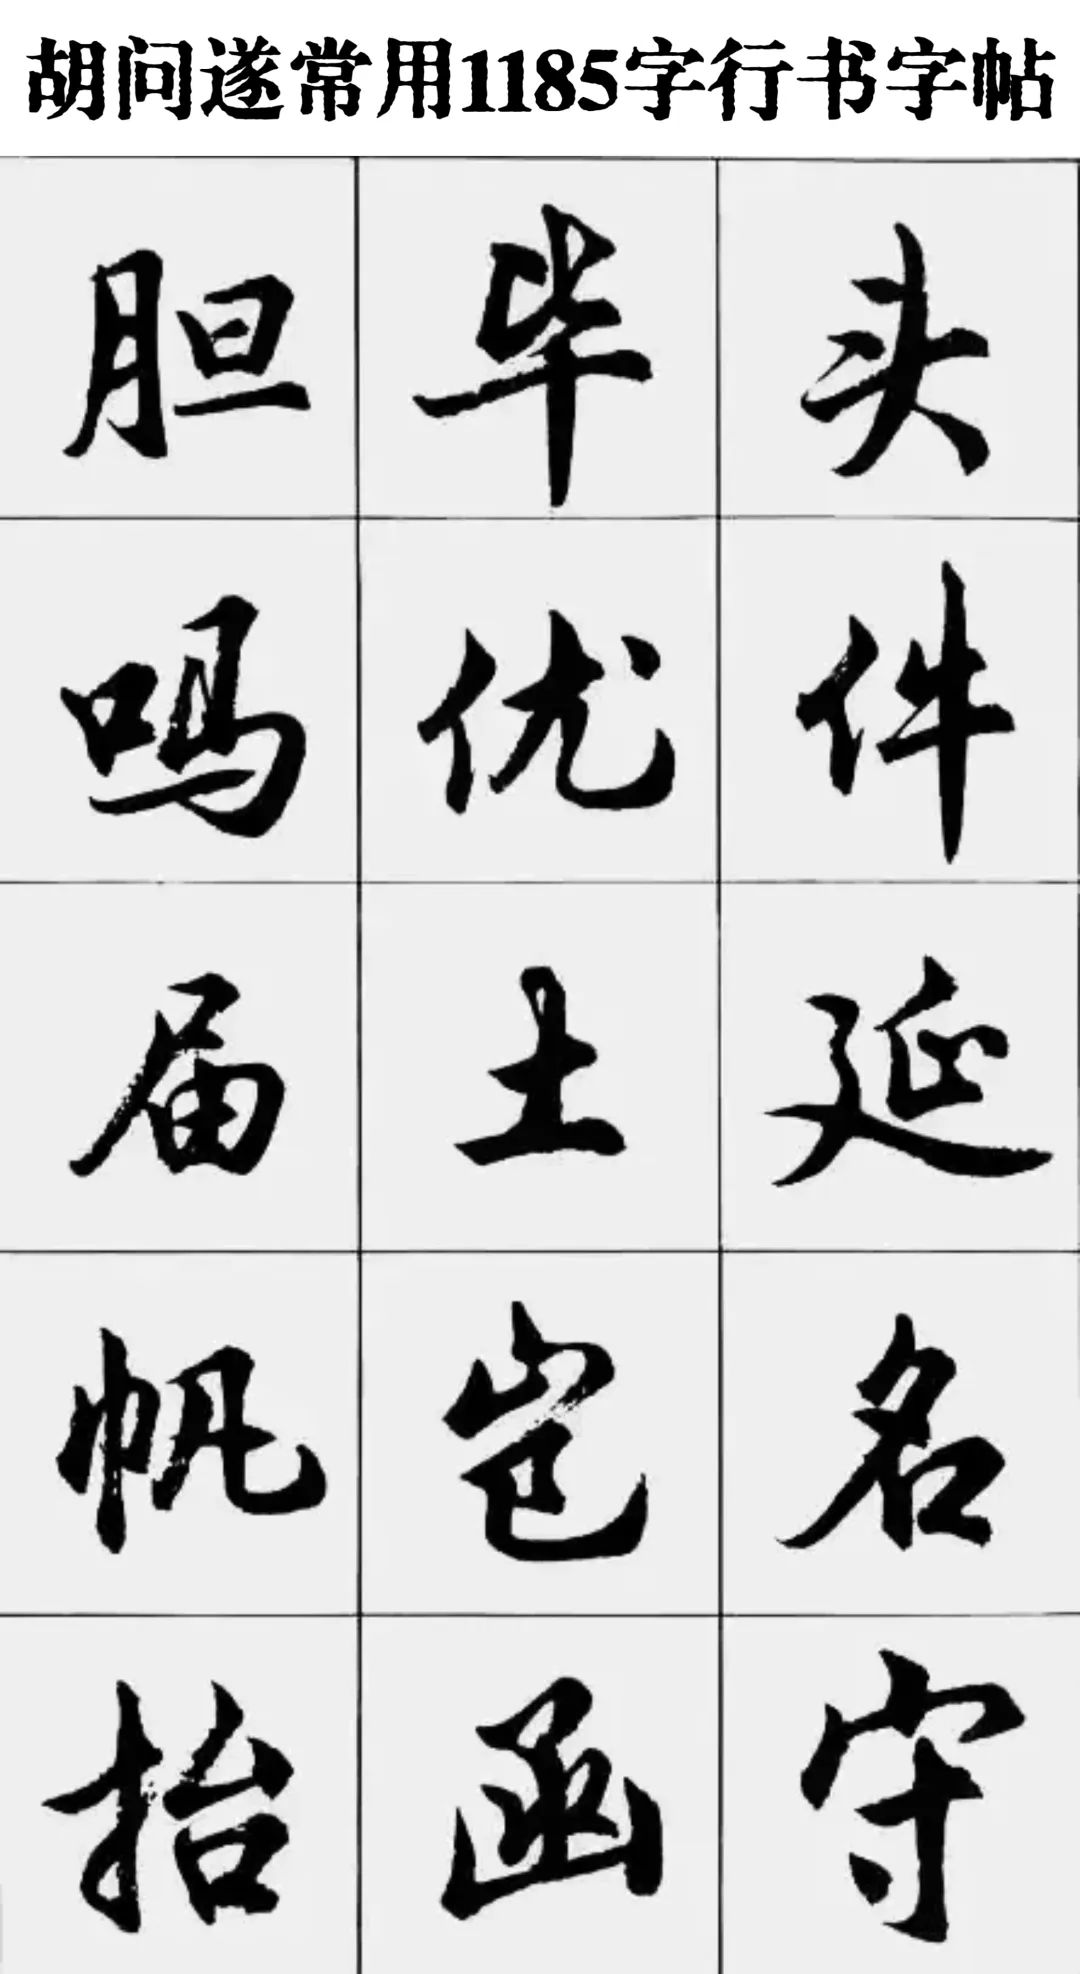 胡问遂常用1185字行书字帖
胆毕头
呜优件
届土延
帆岂名
抬函守